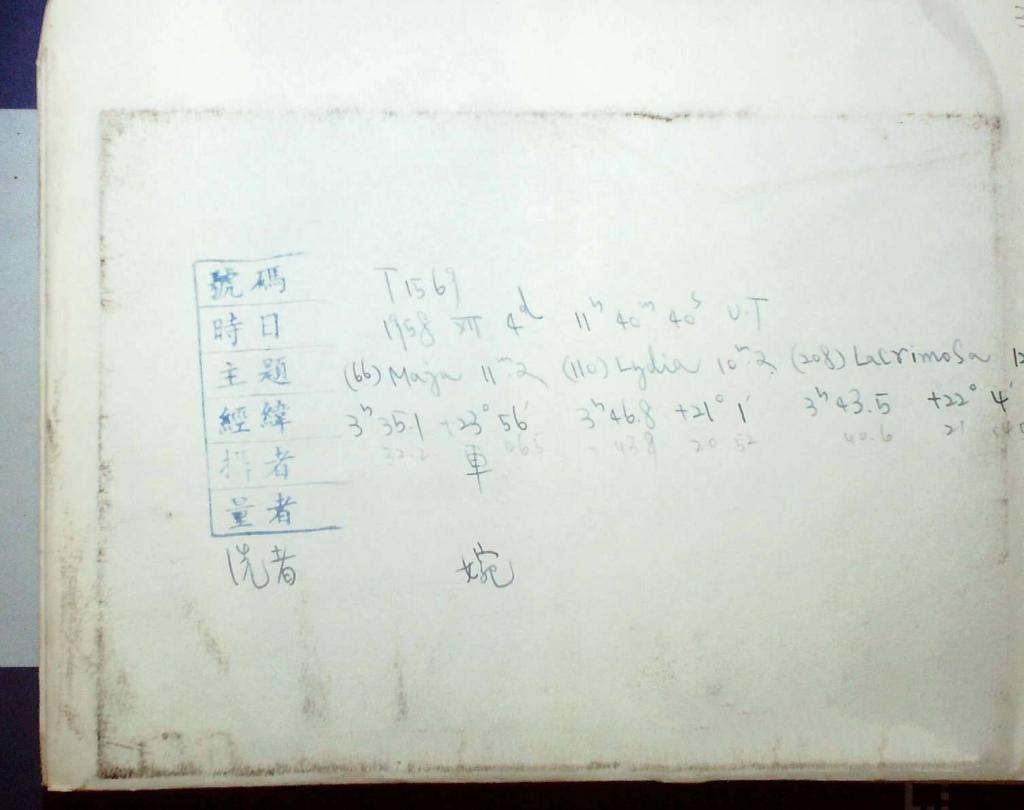 號碼 T1569
時日 1958 XII 4ᵈ 11ʰ 40ᵐ 40ˢ U.T
主題 (66) Maja 11ᵐ.2 (110) Lydia 10ᵐ.2 (208) Lacrimosa 12
經緯 3ʰ35.1 +23°56′ 3ʰ46.8 +21°1′ 3ʰ43.5 +22°4′
32.2 06.5 43.8 20 52 40.6 21
者 車
量者
洗者 婉